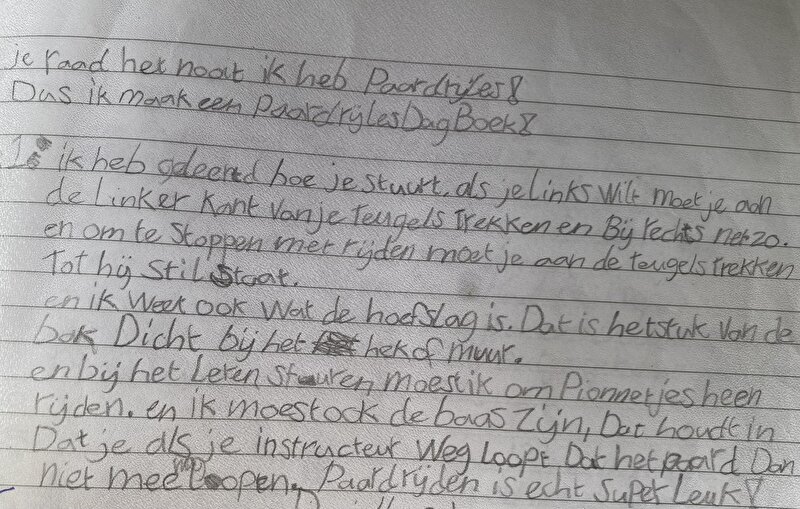 je raad het nooit ik heb Paardrijles!
Dus ik maak een PaardrijlesDagBoek!
1: ik heb geleerd hoe je stuurt. als je links wilt moet je aan
de linker kant van je teugels trekken en Bij rechts net zo.
en om te stoppen met rijden moet je aan de teugels trekken
Tot hij stil staat.
en ik weet ook wat de hoefslag is. Dat is het stuk van de
bak Dicht bij het hek of muur.
en bij het Leren sturen moest ik om Pionnetjes heen
rijden. en ik moest ock de baas zijn, Dat houdt in
Dat je als je instructeur weg loopt Dat het paard Dan
niet mee mag loopen. Paardrijden is echt super Leuk!